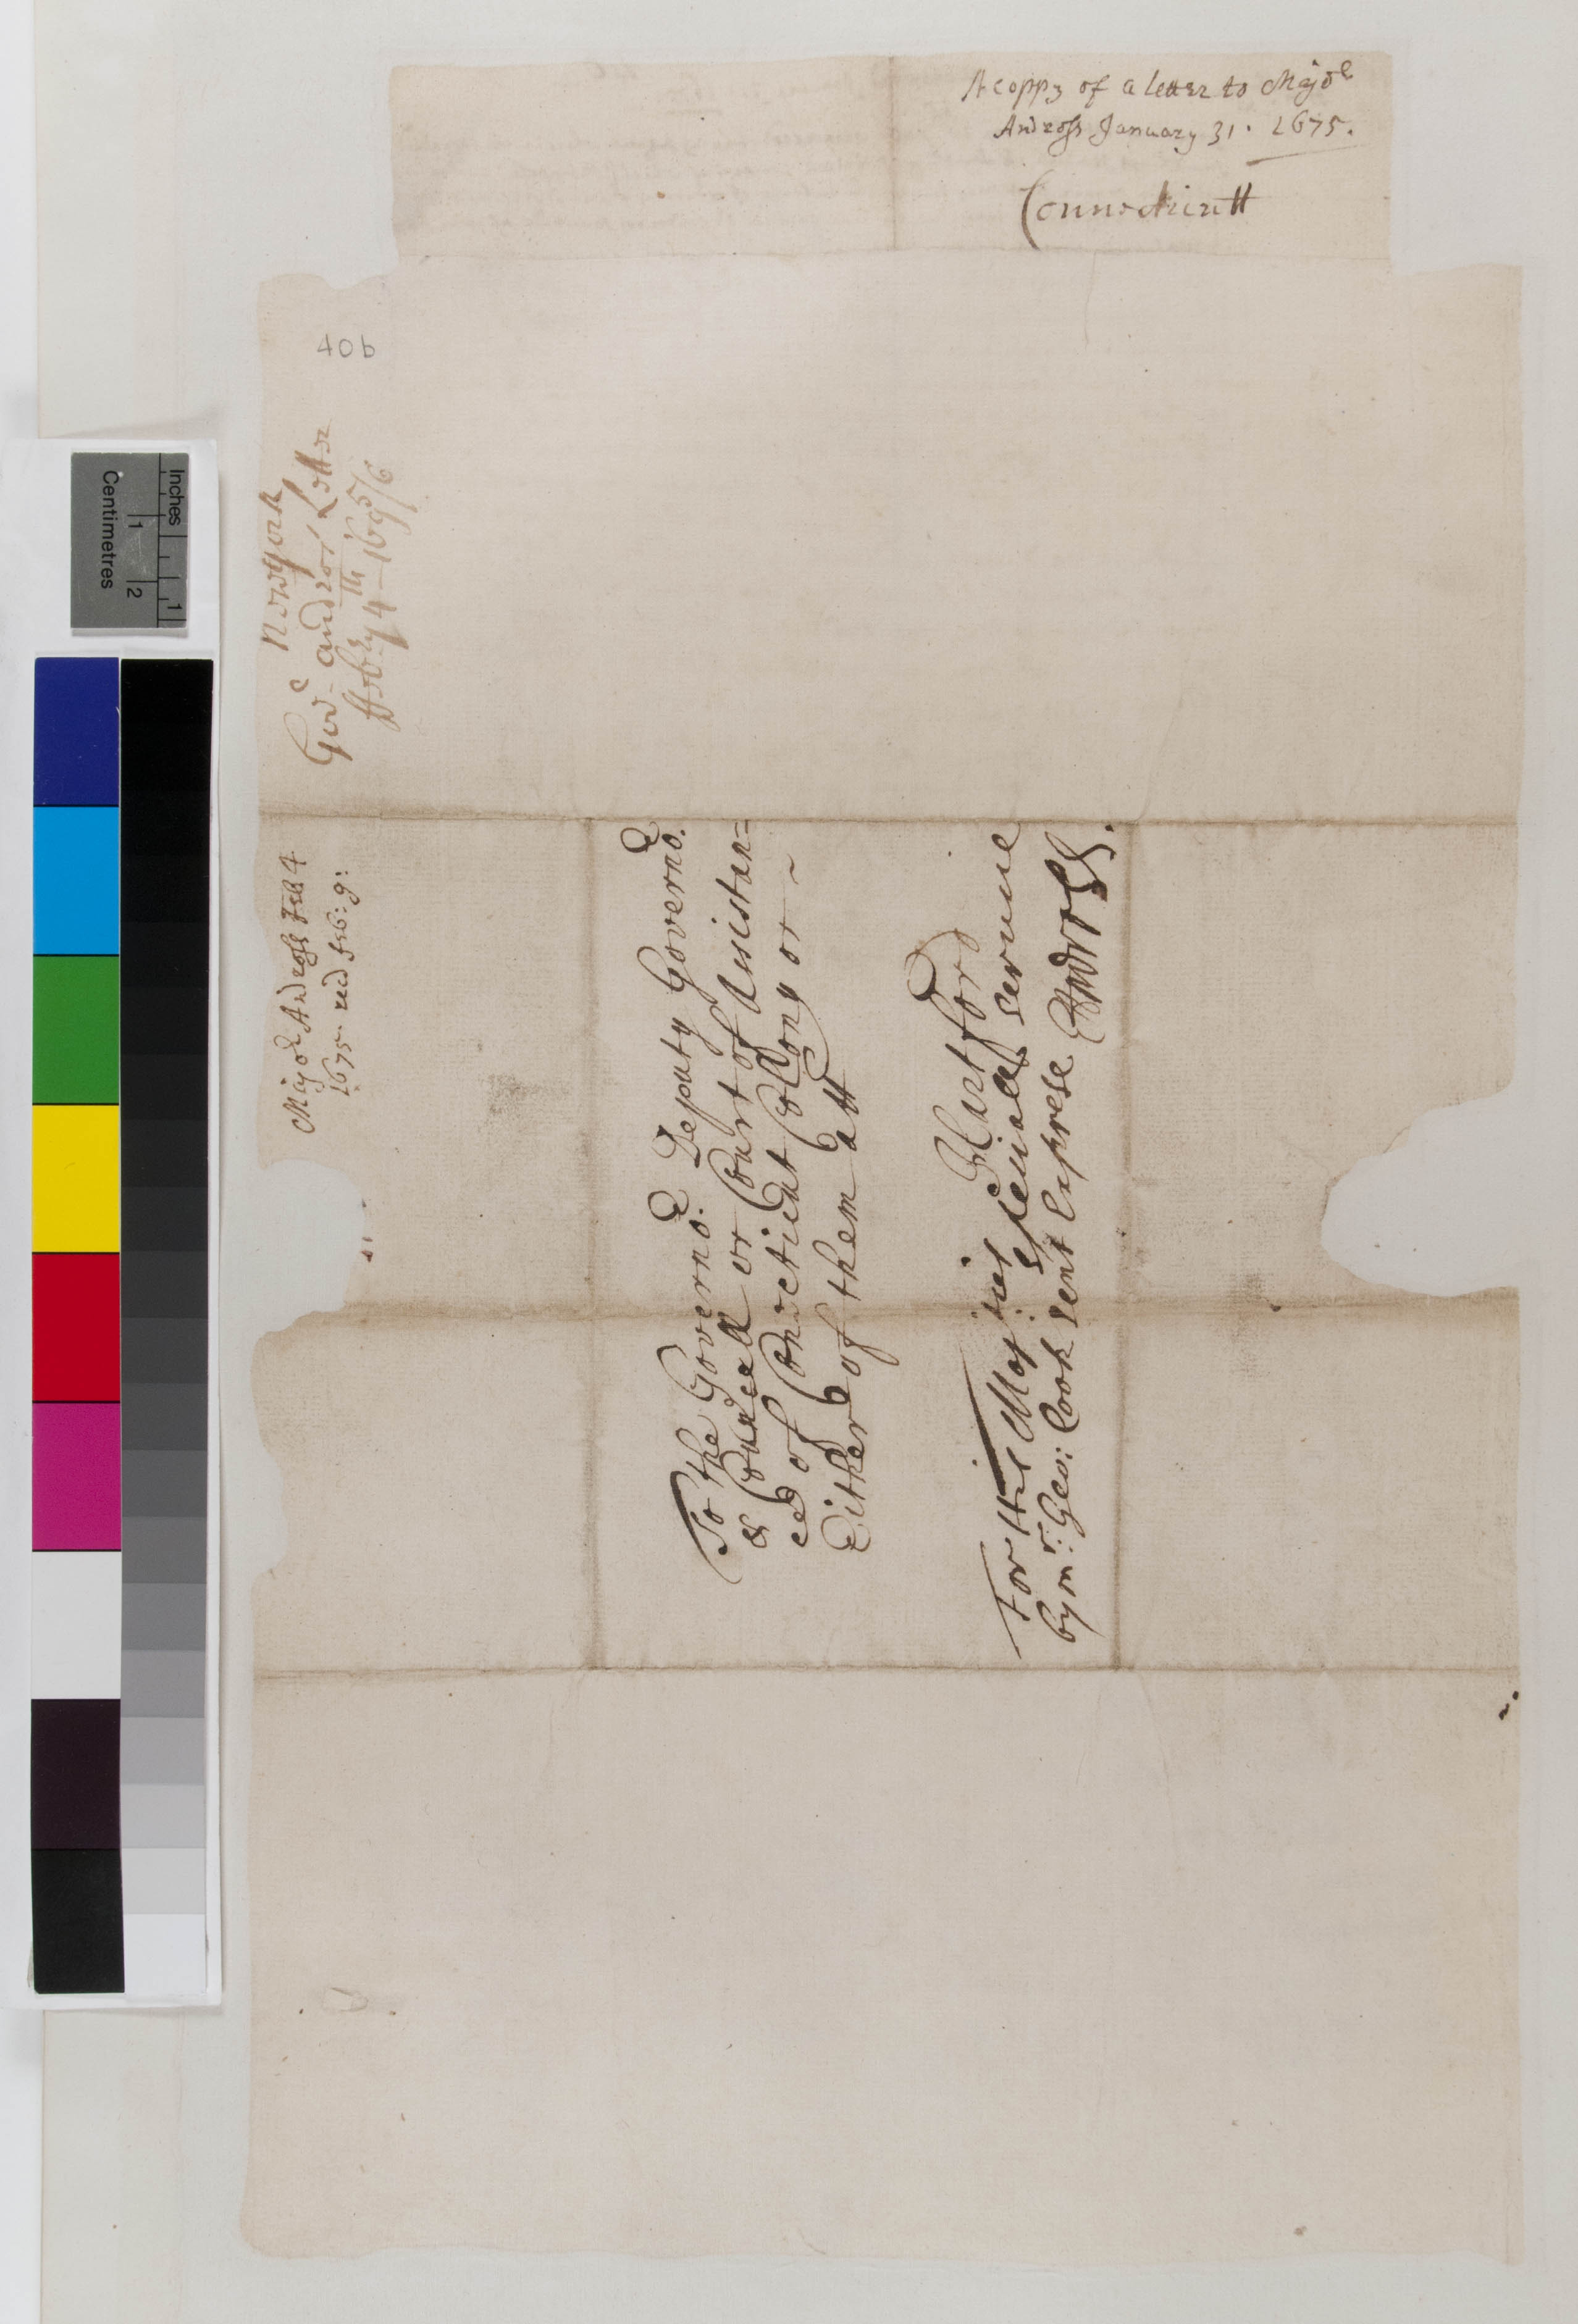 A coppy of a letter to Major
Andross January 31. 1675.
Connecticutt
40b
New york
Govr Andros Letter
ffebry 4th 1675/6
Major Andross Feb 4
1675. recd feb: 9:
To the Governor. Deputy Governor.
& Councell or Court of Assistan=
ces of Conecticut Colony or ~
Either of them att
Hartford
For His Maj:ties speciall service
by mr: Geo: Cook sent Exprese EAndross.
Inches
1
Centimetres
1
2